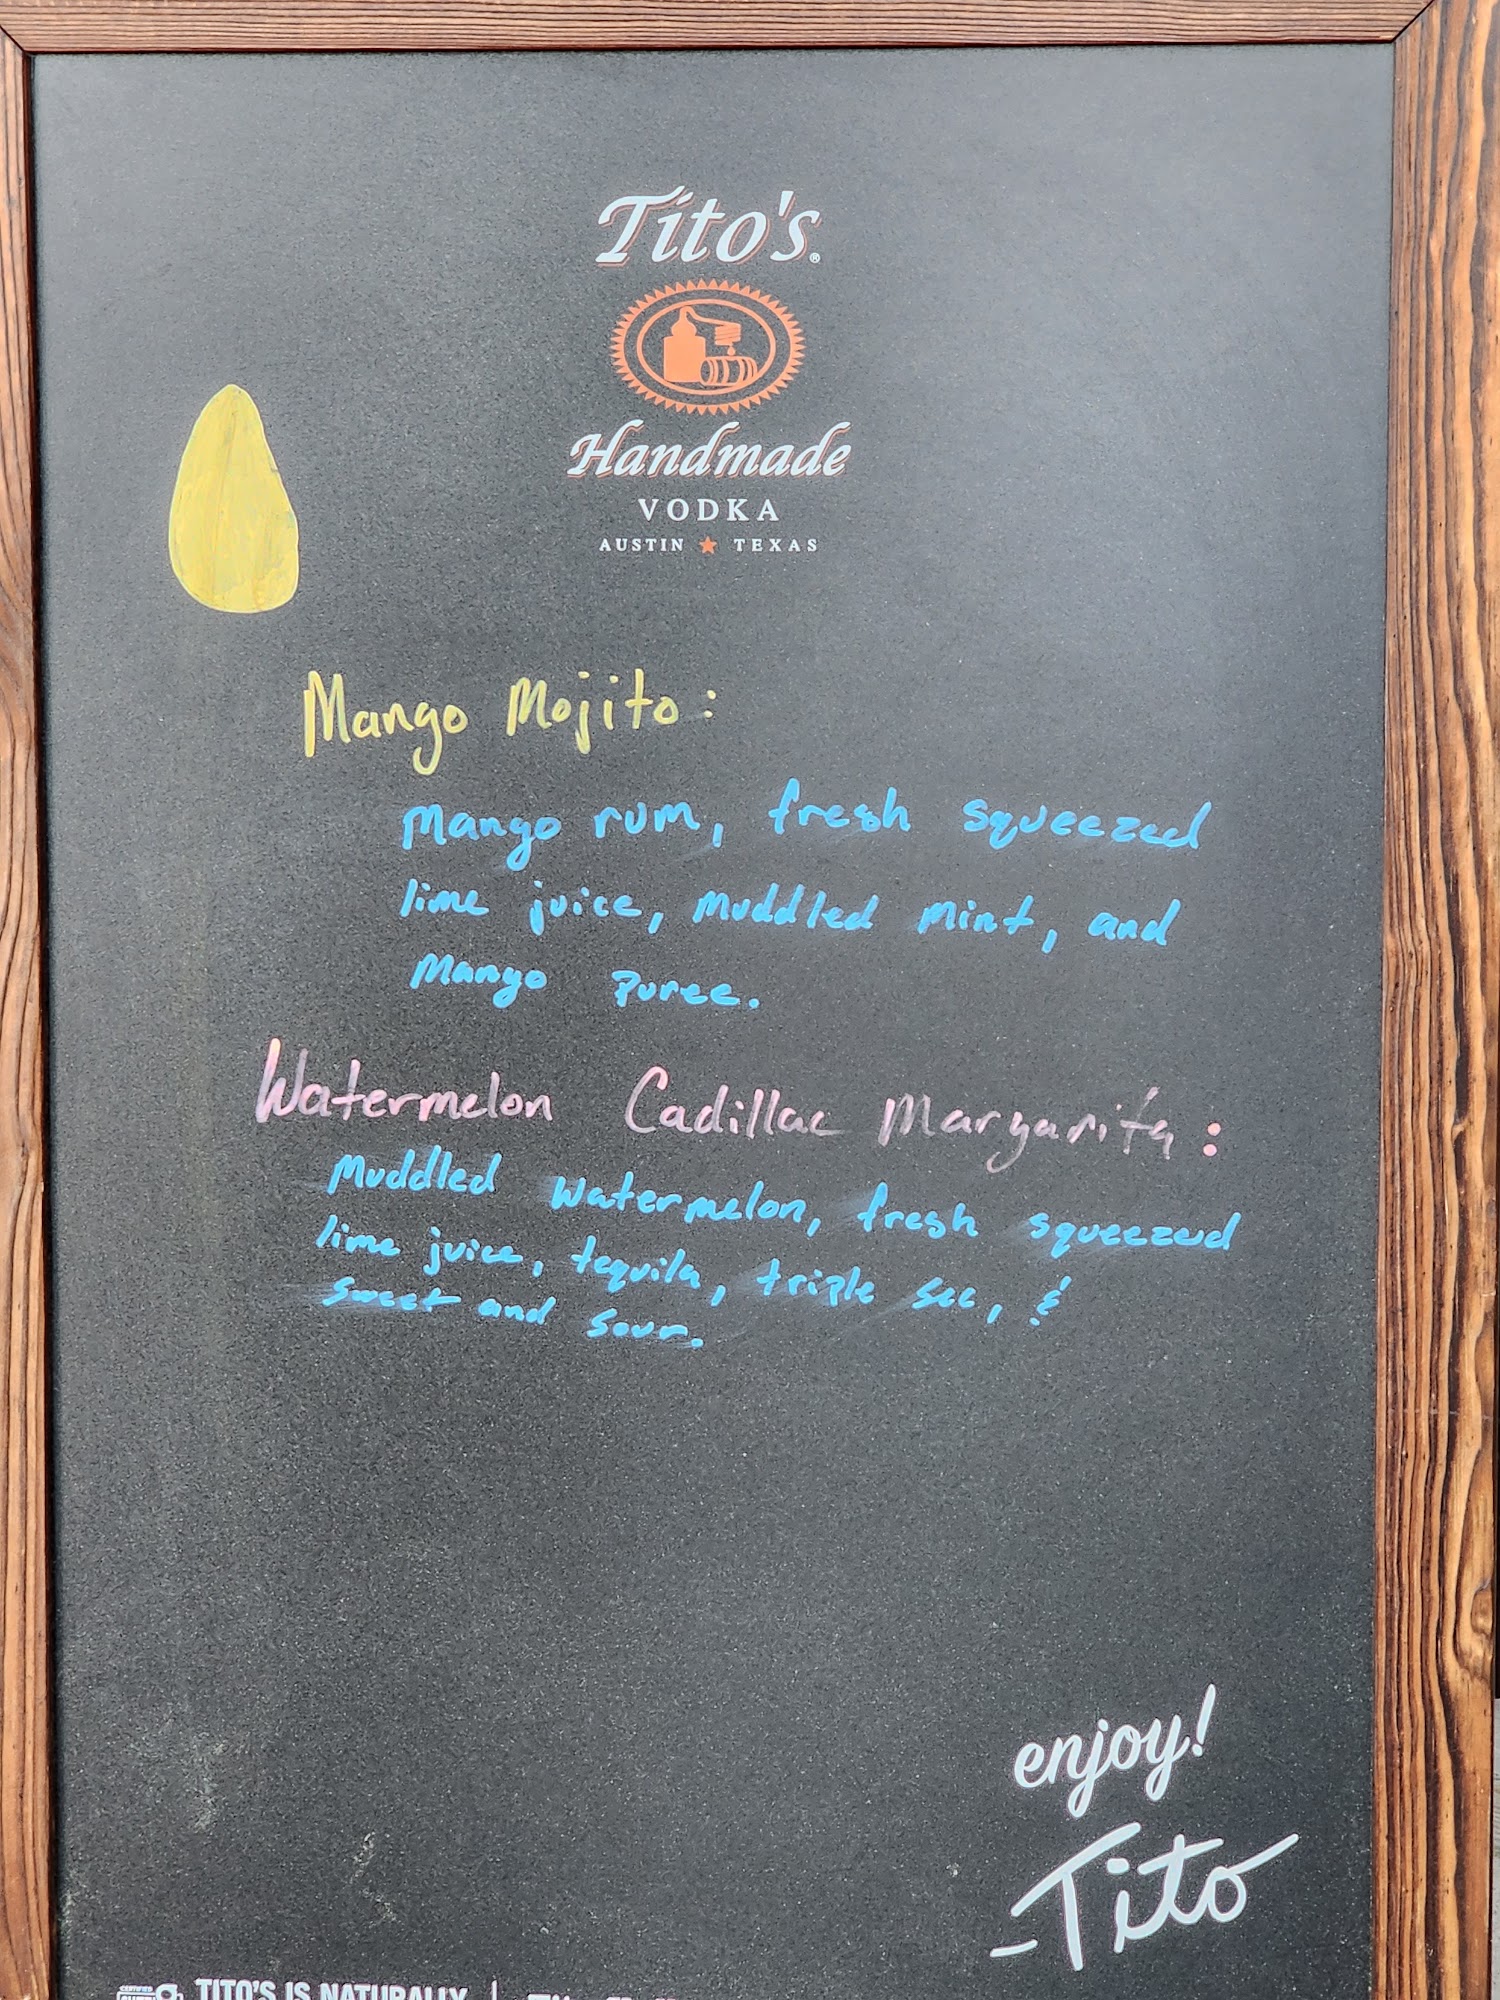 Tito's®
Handmade
VODKA
AUSTIN ★ TEXAS
Mango Mojito:
Mango rum, fresh squeezed
lime juice, muddled mint, and
Mango puree.
Watermelon Cadillac Margarita:
Muddled watermelon, fresh squeezed
lime juice, tequila, triple sec, &
sweet and sour.
enjoy!
-Tito
CERTIFIED
TITO'S IS NATURALLY